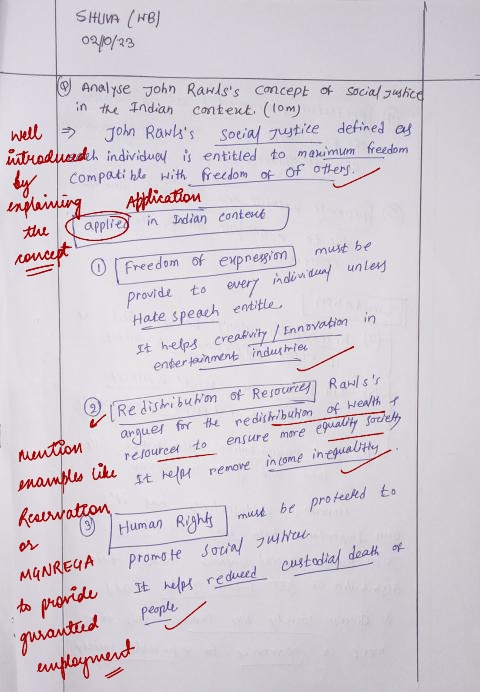 SHUVA (WB)
02/10/23
Q) Analyse John Rawls's concept of social justice
in the Indian context. (10m)
⇒ John Rawls's social justice defined as
each individual is entitled to maximum freedom
compatible with freedom of of others.
Well
introduced
by
explaining
the
concept
Application
applied in Indian context
① Freedom of expression must be
provide to every individual unless
Hate speach entitle.
It helps creativity / Innovation in
entertainment industries
② Redistribution of Resources Rawls's
argues for the redistribution of wealth &
resources to ensure more equality society
It helps remove income inequality.
mention
examples like
Reservation
or
MGNREGA
to provide
guranteed
employment
③ Human Rights must be protected to
promote social justice
It helps reduced custodial death of
people